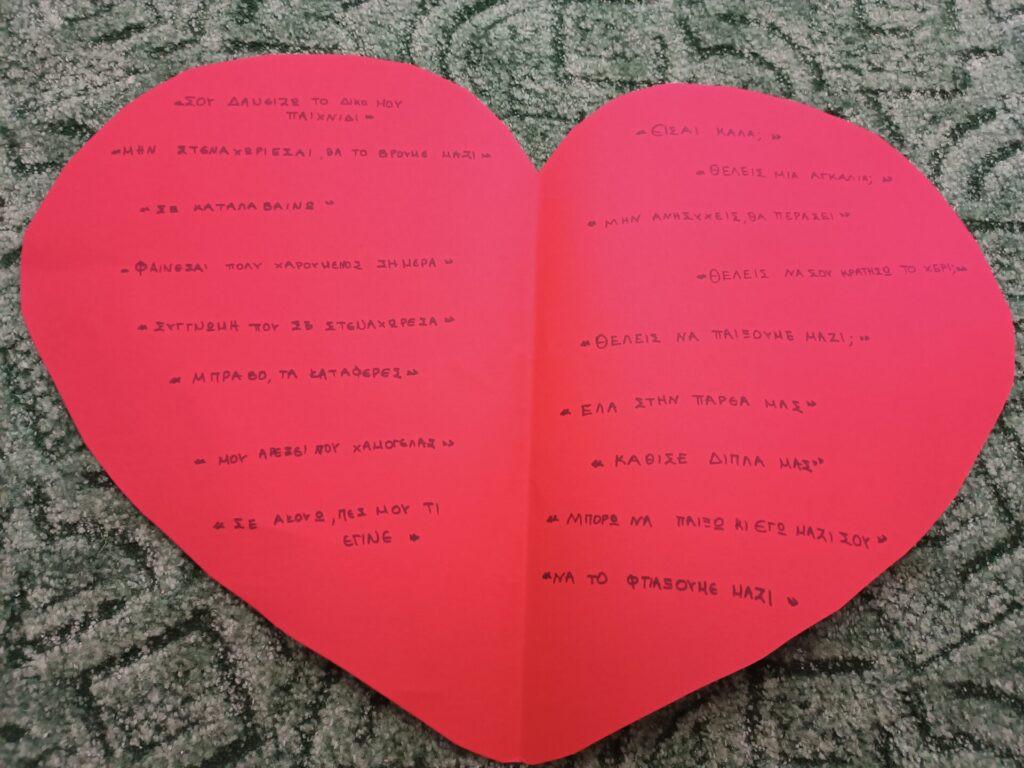 «ΣΟΥ ΔΑΝΕΙΖΩ ΤΟ ΔΙΚΟ ΜΟΥ
ΠΑΙΧΝΙΔΙ»
«ΜΗΝ ΣΤΕΝΑΧΩΡΙΕΣΑΙ, ΘΑ ΤΟ ΒΡΟΥΜΕ ΜΑΖΙ»
«ΣΕ ΚΑΤΑΛΑΒΑΙΝΩ»
«ΦΑΙΝΕΣΑΙ ΠΟΛΥ ΧΑΡΟΥΜΕΝΟΣ ΣΗΜΕΡΑ»
«ΣΥΓΓΝΩΜΗ ΠΟΥ ΣΕ ΣΤΕΝΑΧΩΡΕΣΑ»
«ΜΠΡΑΒΟ, ΤΑ ΚΑΤΑΦΕΡΕΣ»
«ΜΟΥ ΑΡΕΣΕΙ ΠΟΥ ΧΑΜΟΓΕΛΑΣ»
«ΣΕ ΑΚΟΥΩ, ΠΕΣ ΜΟΥ ΤΙ
ΕΓΙΝΕ»
«ΕΙΣΑΙ ΚΑΛΑ;»
«ΘΕΛΕΙΣ ΜΙΑ ΑΓΚΑΛΙΑ;»
«ΜΗΝ ΑΝΗΣΥΧΕΙΣ, ΘΑ ΠΕΡΑΣΕΙ»
«ΘΕΛΕΙΣ ΝΑ ΣΟΥ ΚΡΑΤΗΣΩ ΤΟ ΧΕΡΙ;»
«ΘΕΛΕΙΣ ΝΑ ΠΑΙΞΟΥΜΕ ΜΑΖΙ;»
«ΕΛΑ ΣΤΗΝ ΠΑΡΕΑ ΜΑΣ»
«ΚΑΘΙΣΕ ΔΙΠΛΑ ΜΑΣ»
«ΜΠΟΡΩ ΝΑ ΠΑΙΞΩ ΚΙ ΕΓΩ ΜΑΖΙ ΣΟΥ»
«ΝΑ ΤΟ ΦΤΙΑΞΟΥΜΕ ΜΑΖΙ»